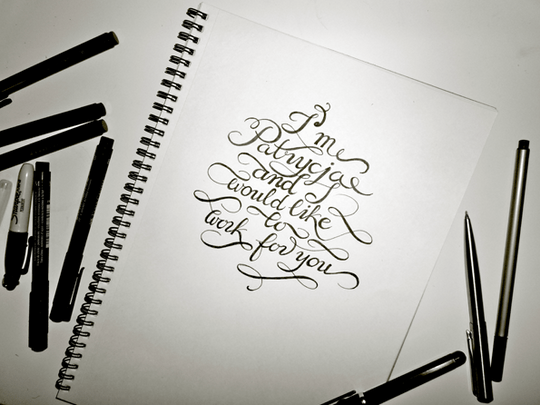 I'm
Patrycja
and I
would like
to
work for you
Sharpie